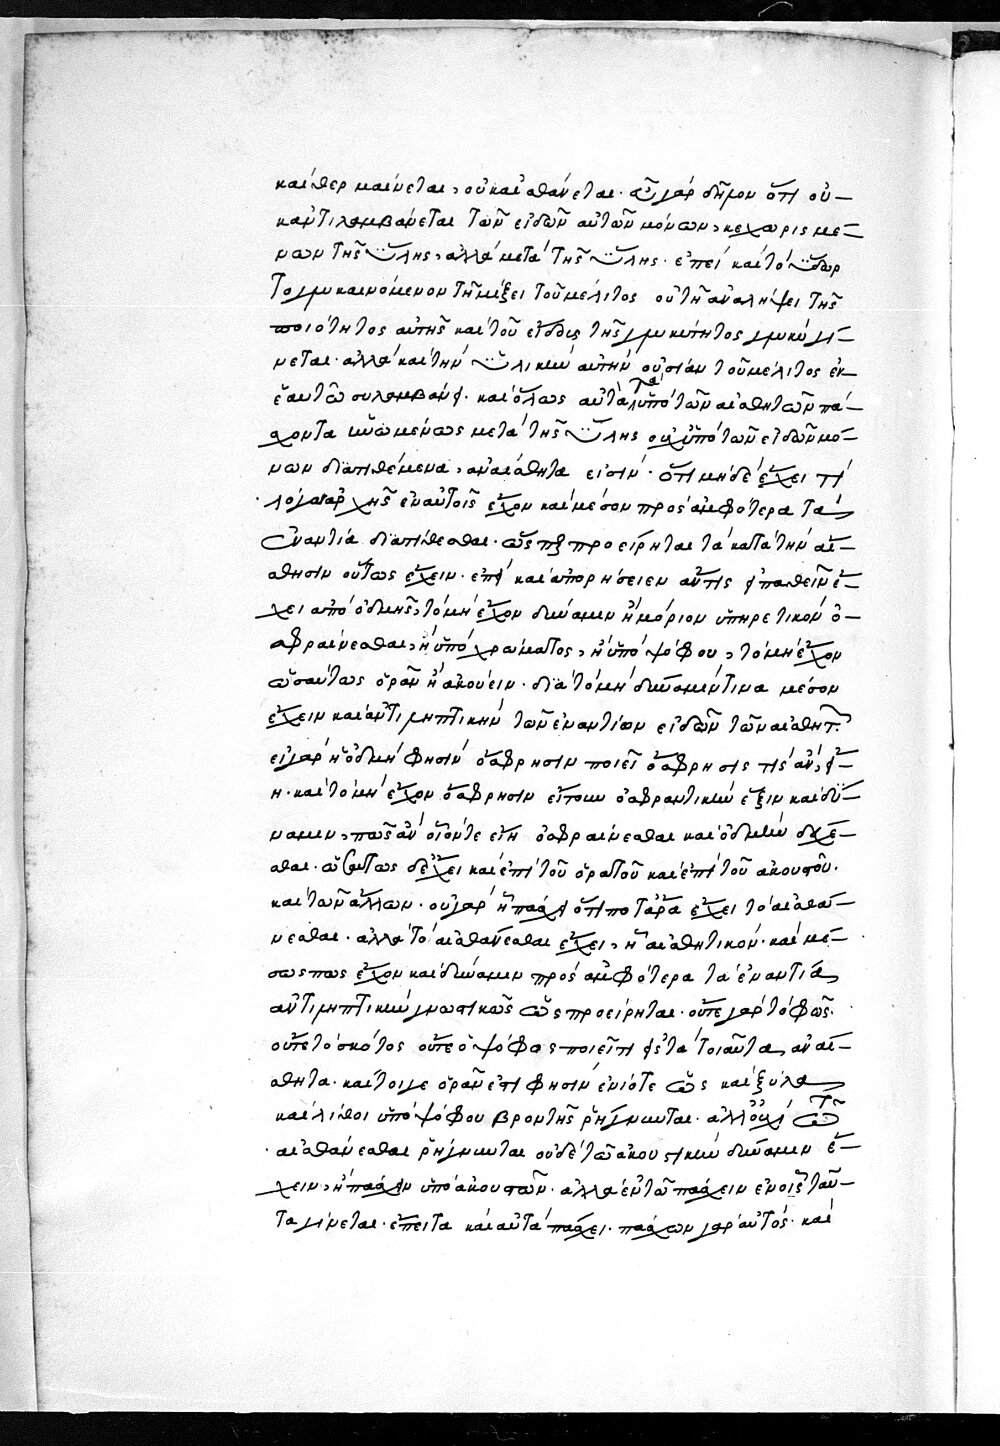 καίπερ μαίνεται, οὐκ αἰσθάνεται. εὖ γὰρ δῆλον ὅτι οὐ-
κ ἀντιλαμβάνεται τῶν εἰδῶν αὐτῶν μόνων, κεχωρισμέ-
νων τῆς ὕλης, ἀλλὰ μετὰ τῆς ὕλης. ἐπεὶ καὶ τὸ ὕδωρ
τὸ γλυκαινόμενον τῇ μίξει τοῦ μέλιτος οὐ τῇ ἀναλήψει τῆς
ποιότητος αὐτῆς καὶ τοῦ εἴδους τῆς γλυκύτητος γλυκὺ γί-
νεται. ἀλλὰ καὶ τὴν ὑλικὴν αὐτὴν οὐσίαν τοῦ μέλιτος ἐν
ἑαυτῷ συλλαμβάνει. καὶ ὅλως αὐτὰ τὰ ὑπὸ τῶν αἰσθητῶν πά-
σχοντα μετὰ τῆς ὕλης οὐχ ὑπὸ τῶν εἰδῶν μό-
νων διατιθέμενα, ἀναίσθητά εἰσιν. ὅτι μηδὲ ἔχει τι
ἐν αὑτοῖς ἔχον καὶ μέσον πρὸς ἀμφότερα τὰ
ἐναντία διατίθεσθαι. ὥσπερ προείρηται τὰ κατὰ τὴν αἴ-
σθησιν οὕτως ἔχειν. ἐπεὶ καὶ ἀπορήσειεν ἄν τις εἰ παθεῖν ἔ-
χει ὑπὸ ὀδμῆς, τὸ μὴ ἔχον δύναμιν ἢ μόριον ὑπηρετικὸν ὀ-
σφραίνεσθαι, ἢ ὑπὸ χρώματος, ἢ ὑπὸ ψόφου, τὸ μὴ ἔχον
ὡσαύτως ὁρᾶν ἢ ἀκούειν. διὰ τὸ μὴ δύναμίν τινα μέσον
ἔχειν καὶ ἀντιληπτικὴν τῶν ἐναντίων εἰδῶν τῶν αἰσθητ.
εἰ γὰρ ἡ ὀδμή φησιν ὄσφρησιν ποιεῖ ὄσφρησίς τις ἂν, εἴ-
η. καὶ τὸ μὴ ἔχον ὄσφρησιν εἴτουν ὀσφραντικὴν ἕξιν καὶ δύ-
ναμιν, πῶς ἂν οἷόν τε εἴη ὀσφραίνεσθαι καὶ ὀδμὴν δέχε-
σθαι. ὡσαύτως δὲ ἔχει καὶ ἐπὶ τοῦ ὁρατοῦ καὶ ἐπὶ τοῦ ἀκουστοῦ.
καὶ τῶν ἄλλων. οὐ γὰρ ᾗ πάσχει ὅτι ποτ' ἄρα ἔχει τὸ αἰσθά-
νεσθαι. ἀλλὰ τὸ αἰσθάνεσθαι ἔχει, ᾗ αἰσθητικόν. καὶ μέ-
σως πως ἔχον καὶ δύναμιν πρὸς ἀμφότερα τὰ ἐναντία
ἀντιληπτικὴν γνωστικῶς ὡς προείρηται. οὔτε γὰρ τὸ φῶς.
οὔτε τὸ σκότος οὔτε ὁ ψόφος ποιεῖ τι εἰς τὰ τοιαῦτα, ἀναί-
σθητα. καίτοιγε ὁρᾶν ἔτι φησὶν ἐνίοτε ὡς καὶ ξύλα
καὶ λίθοι ὑπὸ ψόφου βροντῆς ῥήγνυνται. ἀλλ' οὐχὶ τῷ
αἰσθάνεσθαι ῥήγνυνται οὐδὲ τῷ ἀκουστικὴν δύναμιν ἔ-
χειν, ἢ πάσχειν ὑπὸ ἀκουστῶν. ἀλλὰ ἐν τῷ πάσχειν ἐν οἷς ταῦ-
τα γίνεται. ἔπειτα καὶ αὐτὰ πάσχει. πάσχων γὰρ αὐτὸς. καὶ